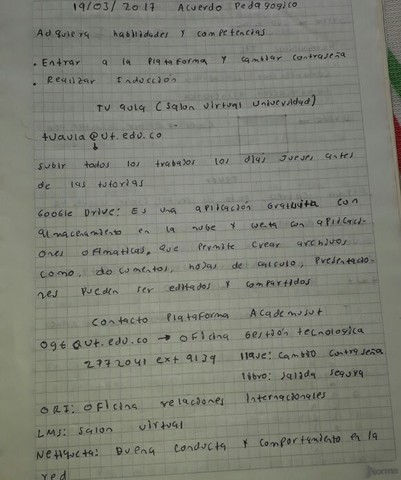 19/03/2017 Acuerdo Pedagogico
Adquiera habilidades y competencias
. Entrar a la Plataforma y cambiar contraseña
. Realizar Inducción
Tu aula (Salon virtual Universidad)
tuaula@ut.edu.co
subir todos los trabajos los dias jueves antes
de las tutorias
Google Drive: Es una aplicación gratuita con
almacenamiento en la nube y cuenta con aplicaci-
ones ofimaticas, que permite crear archivos
como, documentos, hojas de calculo, presentacio-
nes pueden ser editados y compartidos
Contacto Plataforma Academusut
ogt@ut.edu.co → oficina Gestión tecnologica
2772041 ext 9139 llave: cambio contraseña
libro: salida segura
ORI: Oficina relaciones Internacionales
LMS: Salon virtual
Netiqueta: Buena conducta y comportamiento en la
red